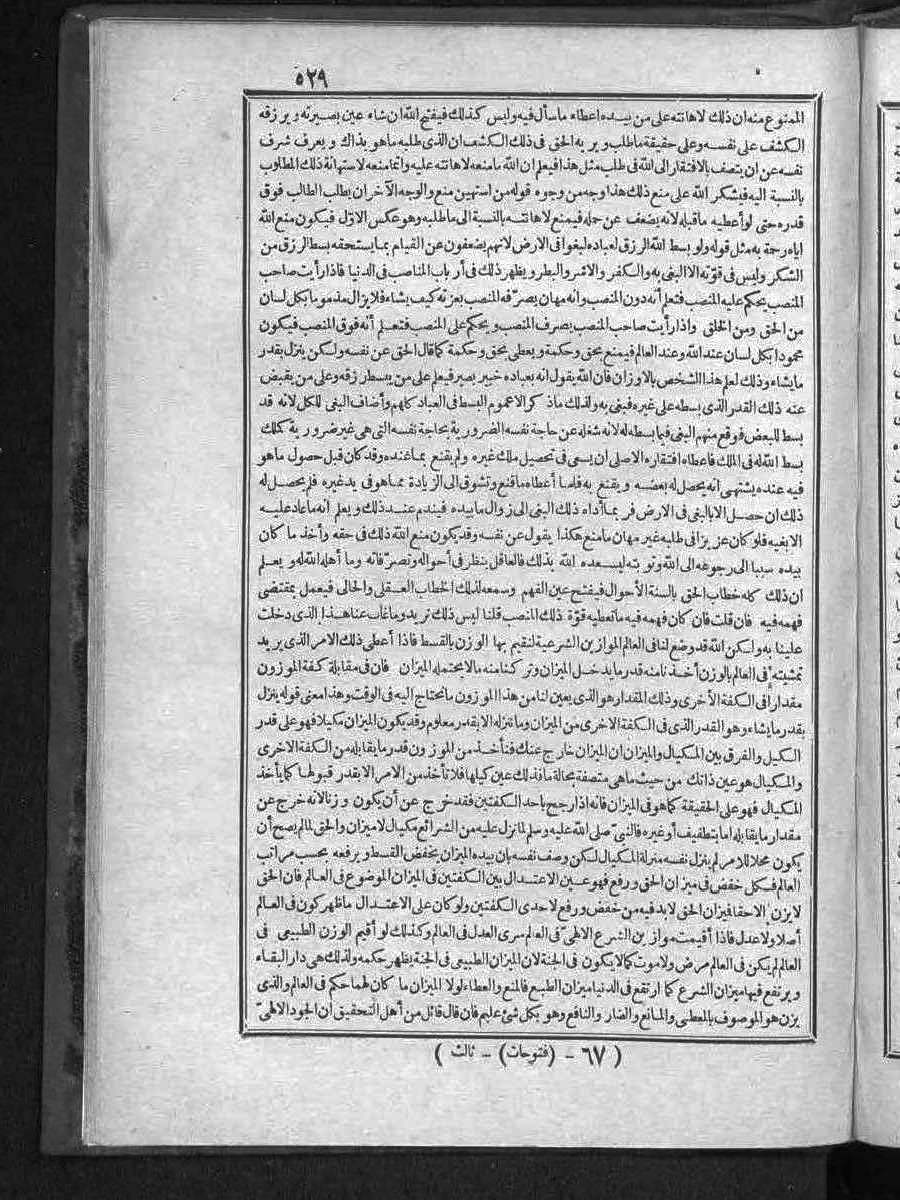 ٥٢٩
الممنوع منه ان ذلك لاهانته على من بيده اعطاء ما سأل فيه وليس كذلك فيفتح الله ان شاء عين بصيرته ويرزقه
الكشف على نفسه وعلى حقيقة ما طلب ويريه الحق في ذلك الكشف ان الذي طلبه ما هو بذاك ويعرف شرف
نفسه عن ان يتصف بالافتقار الى الله في طلب مثل هذا فيعلم ان الله ما منعه لاهانته عليه وانما منعه لاستهانة ذلك المطلوب
بالنسبة اليه فيشكر الله على منع ذلك هذا وجه من وجوه قوله من استهين منع والوجه الآخر ان يطلب الطالب فوق
قدره حتى لو أعطيه ما قبله لانه يضعف عن حمله فيمنع لاهانته بالنسبة الى ما طلبه وهو عكس الاوّل فيكون منع الله
اياه رحمة به مثل قوله ولو بسط الله الرزق لعباده لبغوا في الارض لانهم يضعفون عن القيام بما يستحقه بسط الرزق من
الشكر وليس في قوّته الا البغي به والكفر والاشر والبطر ويظهر ذلك في أرباب المناصب في الدنيا فاذا رأيت صاحب
المنصب يحكم عليه المنصب فتعلم أنه دون المنصب وانه مهان يصرّفه المنصب بعزته كيف يشاء فلا يزال مذموما بكل لسان
من الحق ومن الخلق واذا رأيت صاحب المنصب يصرف المنصب ويحكم على المنصب فتعلم أنه فوق المنصب فيكون
محمودا بكل لسان عند الله وعند العالم فيمنع بحق وحكمة ويعطي بحق وحكمة كما قال الحق عن نفسه ولكن ينزل بقدر
ما يشاء وذلك لعلم هذا الشخص بالاوزان فان الله يقول انه بعباده خبير بصير فيعلم على من يبسط رزقه وعلى من يقبض
عنه ذلك القدر الذي بسطه على غيره فيبغي به ولذلك ما ذكر الا عموم البسط في العباد كلهم وأضاف البغي للكل لانه قد
بسط للبعض فوقع منهم البغي فيما بسطه له لانه شغله عن حاجة نفسه الضرورية بحاجة نفسه التي هي غير ضرورية كملك
بسط الله له في الملك فاعطاه افتقاره الاصلي ان يسعى في تحصيل ملك غيره ولم يقنع بما عنده وقد كان قبل حصول ما هو
فيه عنده يشتهي انه يحصل له بعضه ويقنع به فلما أعطاه ما قنع وتشوّق الى الزيادة مما هو في يد غيره فلم يحصل له
ذلك ان حصل الا بالبغي في الارض فربما أداه ذلك البغي الى زوال ما بيده فيندم عند ذلك ويعلم انه ما عاد عليه
الا بغيه فلو كان عزيزا في طلبه غير مهان ما منع هكذا يقول عن نفسه وقد يكون منع الله ذلك في حقه وأخذ ما كان
بيده سببا الى رجوعه الى الله وتوبته ليسعده الله بذلك فالعاقل ينظر في أحواله وتصرّفاته وما أهله الله له ويعلم
ان ذلك كله خطاب الحق بألسنة الأحوال فيفتح عين الفهم وسمعه لذلك الخطاب العقلي والحالي فيعمل بمقتضى
فهمه فيه فان قلت فان كان فهمه فيه ما تعطيه قوّة ذلك المنصب قلنا ليس ذلك نريد وما غاب عنا هذا الذي دخلت
علينا به ولكن الله قد وضع لنا في العالم الموازين الشرعية لنقيم بها الوزن بالقسط فاذا أعطى ذلك الامر الذي يريد
تمشيته في العالم بالوزن أخذنا منه قدر ما يدخل الميزان وتركنا منه ما لا يحتمله الميزان فان في مقابلة كفة الموزون
مقدارا في الكفة الأخرى وذلك المقدار هو الذي يعين لنا من هذا الموزون ما نحتاج اليه في الوقت وهذا معنى قوله ينزل
بقدر ما يشاء وهو القدر الذي في الكفة الاخرى من الميزان وما ننزله الا بقدر معلوم وقد يكون الميزان مكيلا فهو على قدر
الكيل والفرق بين المكيال والميزان ان الميزان خارج عنك فنأخذ من الموزون قدر ما يقابله من الكفة الاخرى
والمكيال هو عين ذاتك من حيث ما هي متصفة بحالة ما فذلك عين كيلها فلا تأخذ من الامر الا بقدر قبولها كما يأخذ
المكيال فهو على الحقيقة كما هو في الميزان فانه اذا رجح باحد الكفتين فقد خرج عن أن يكون وزنا لانه خرج عن
مقدار ما يقابله اما بتطفيف أو غيره فالنبيّ صلى الله عليه وسلم لما نزل عليه من الشرائع مكيال لا ميزان والحق لما لم يصح أن
يكون محلا للامر لم ينزل نفسه منزلة المكيال لكن وصف نفسه بان بيده الميزان يخفض القسط ويرفعه بحسب مراتب
العالم فكل خفض في ميزان الحق ورفع فهو عين الاعتدال بين الكفتين في الميزان الموضوع في العالم فان الحق
لا يزن الا حقا فميزان الحق لا بد فيه من خفض ورفع لاحدى الكفتين ولو كان على الاعتدال ما ظهر كون في العالم
أصلا ولا عدل فاذا أقيمت موازين الشرع الالهيّ في العالم سرى العدل في العالم وكذلك لو أقيم الوزن الطبيعي في
العالم لم يكن في العالم مرض ولا موت كما لا يكون في الجنة لان الميزان الطبيعي في الجنة يظهر حكمه ولذلك هي دار البقاء
ويرتفع فيها ميزان الشرع كما ارتفع في الدنيا ميزان الطبيع فالمنع والعطاء لولا الميزان ما كان لهما حكم في العالم والذي
يزن هو الموصوف بالمعطي والمانع والضار والنافع وهو بكل شئ عليم فان قال قائل من أهل التحقيق أن الجود الالهيّ
( ٦٧ - (فتوحات) - ثالث )